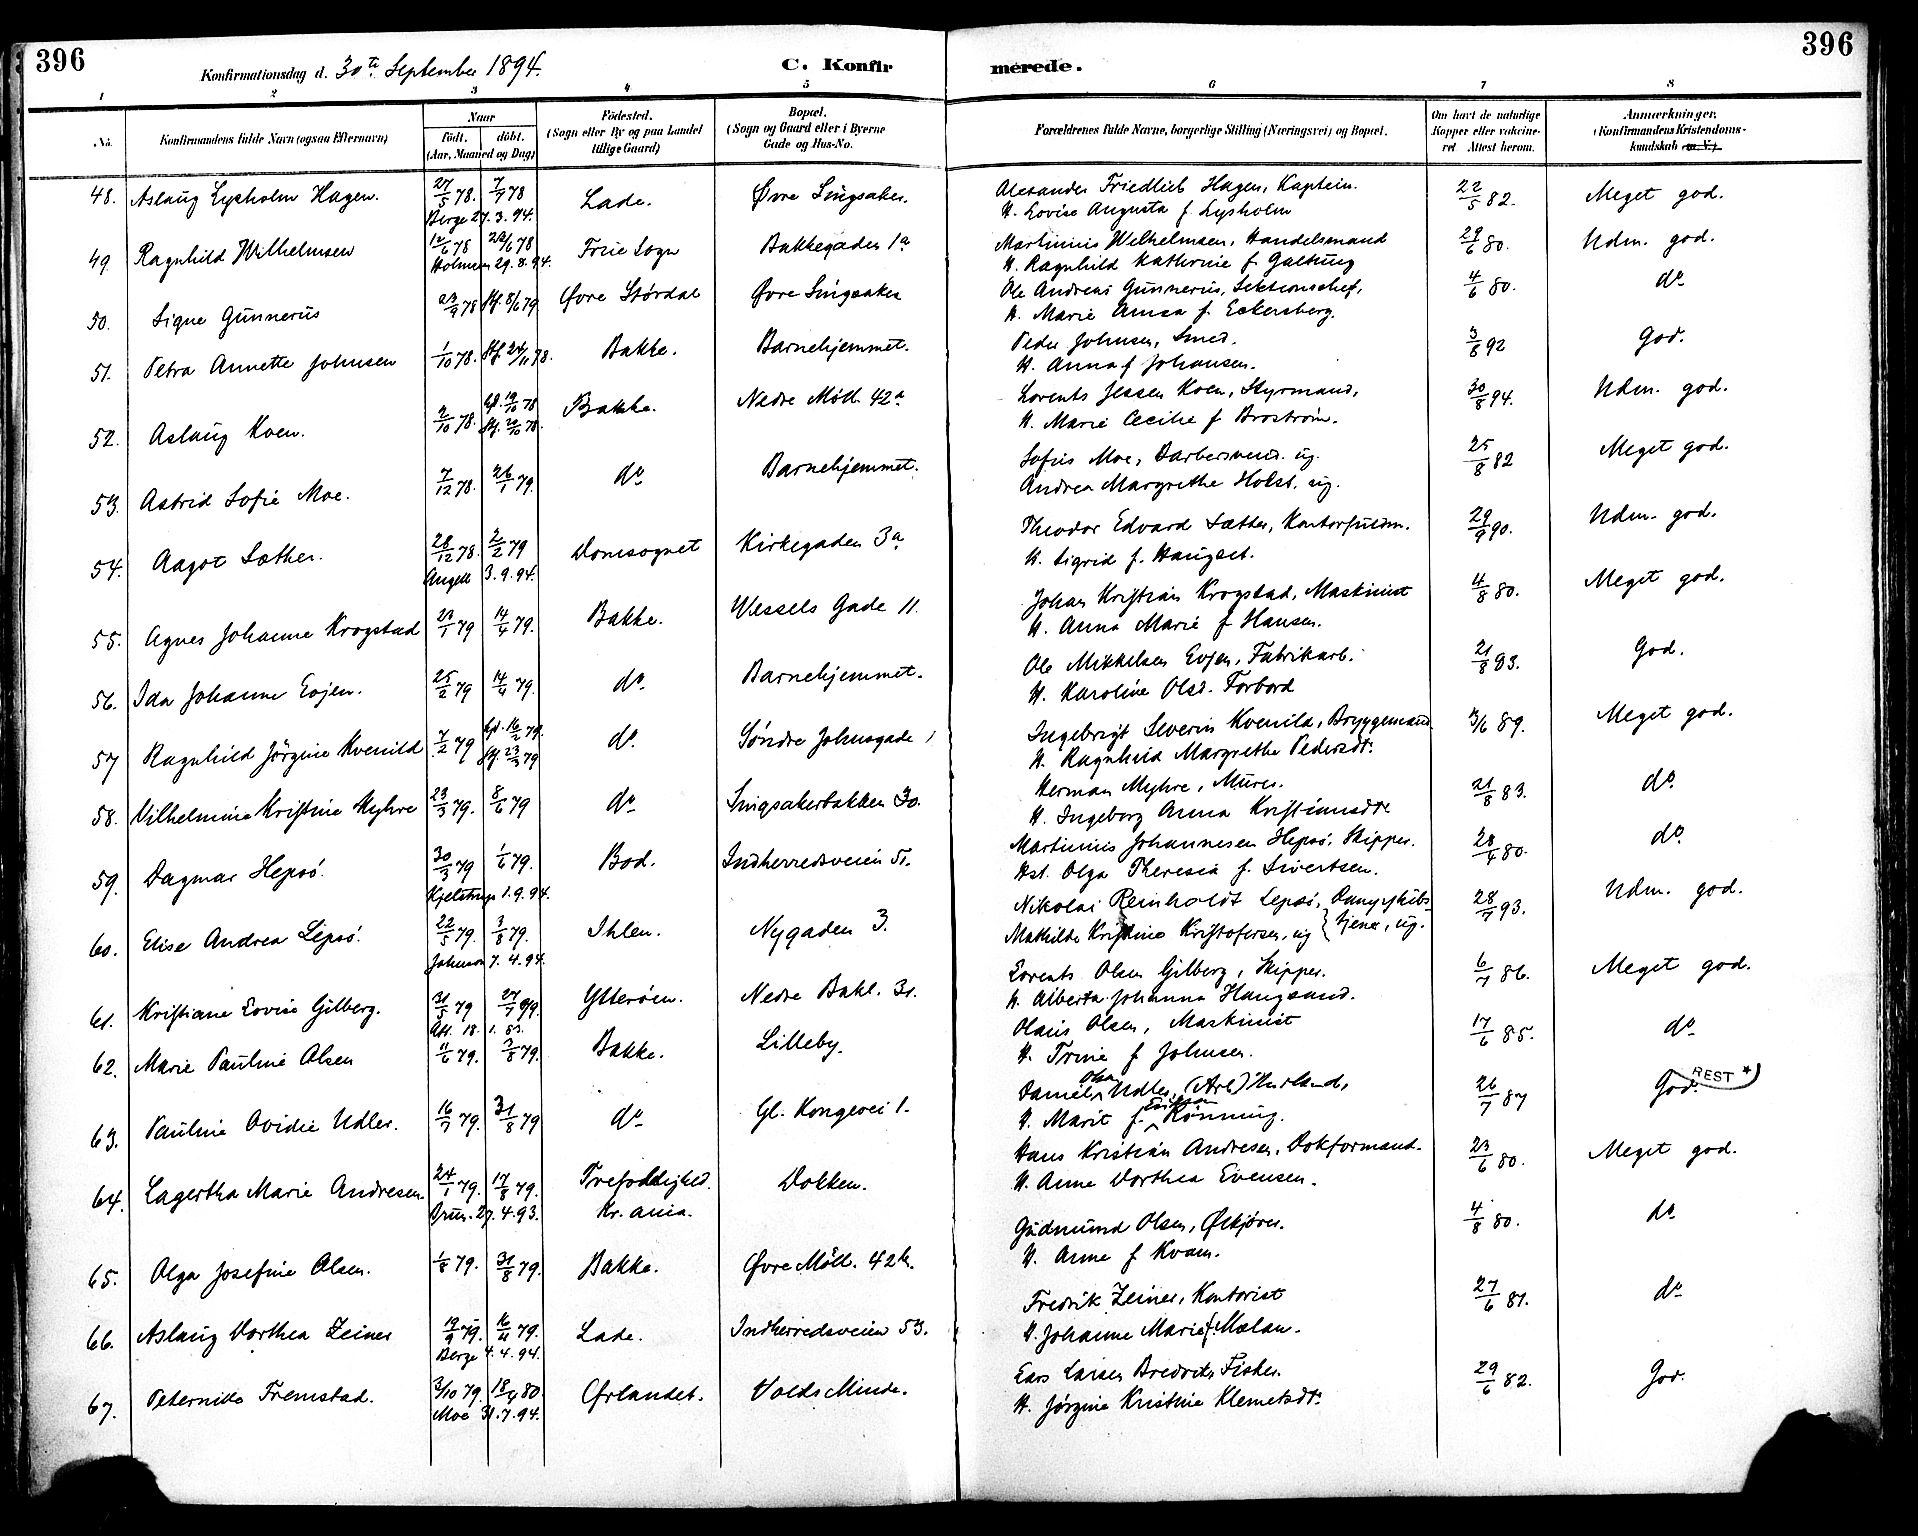 396
396
Konfirmationsdag d. 30te September 1894.
C. Konfir
merede.
1 2 3 4 5 6 7 8
No.
Konfirmandens fulde Navn (ogsaa Efternavn)
Naar
født. døbt.
(Aar, Maaned og Dag)
Fødested.
(Sogn eller By og paa Landet
tillige Gaard)
Bopæl.
(Sogn og Gaard eller i Byerne
Gade og Hus-No.
Forældrenes fulde Navne, borgerlige Stilling (Næringsvei) og Bopæl.
Om havt de naturlige
Kopper eller vaccine-
ret Attest herom.
Anmærkninger.
(Konfirmandens Kristendoms-
kundskab m. V.)
48. Aslaug Lysholm Hagen. 27/5 78. 7/7 78 Lade. Øvre Singsaker. Alexander Friedlieb Hagen, Kaptein. 22/5 82. Meget god.
Berge 27.3.94. H. Lovise Augusta f. Lysholm
49. Ragnhild Wilhelmsen 12/6 78 Frue Sogn Bakkegaden 1a Martinius Wilhelmsen, Handelsmand 29/6 80. Udm. god.
Holmsen 29.8.94. H. Ragnhild Kathrine f. Galtung
50. Signe Gunnerus 23/9 78 Hf. 8/6 79 Øvre Størdal Øvre Singsaker Ole Andreas Gunnerus, Sektionschef, 4/6 80. do
H. Marie Amsa f. Eckersberg.
51. Petra Annette Johnsen 1/10 78. Hf. 24/11 78. Bakke. Barnehjemmet. Peder Johnsen, Smed. 3/8 92 God.
H. Anna f Johansen.
52. Aslaug Koen. 2/10 78. 19/10 78 Bakke. Nedre Møll. 42a Lorents Jessen Koen, Styrmand, 30/8 94. Udm. god.
H. Marie Cecilie f Brostrøm.
53. Astrid Sofie Moe. 7/12 78. 26/1 79. do Barnehjemmet. Sofus Moe, Barbersvend. ug. 25/8 82 Meget god.
Andrea Margrethe Holst. ug.
54. Aagot Sæther. 28/12 78. 2/2 79 Domsognet Kirkegaden 3a Theodor Edvard Sæther, Kontorfuldm. 29/9 90. Udm. god.
Angell 3.9.94. H. Sigrid f. Hangset.
55. Agnes Johanne Krogstad 23/1 79 14/4 79. Bakke. Wessels Gade 11. Johan Kristian Krogstad, Maskinist 4/8 80. Meget god.
H. Anna Marie f Hansen.
56. Ida Johanne Evjen. 25/2 79 14/4 79. do. Barnehjemmet. Ole Mikkelsen Evjen, Fabrikarb. 21/8 93. God.
H. Karoline Olsd. Forbord
57 Ragnhild Jörgine Kvenild 7/2 79 16/2 79. do. Søndre Johnsgade 1 Ingebrigt Severin Kvenild, Bryggemand. 3/6 89. Meget god.
23/3 79 H. Ragnhild Margrethe Pedersdt.
58. Vilhelmine Kristine Myhre 23/3 79. 8/6 79 do. Singsakerbakken 30. Herman Myhre, Murer. 21/8 83. do.
H. Ingeborg Anna Kristiansdt.
59. Dagmar Hepsö. 30/3 79 1/6 79. Bod. Indherredsveien 51. Martinius Johannesen Hepsö, Skipper. 28/4 80. do.
Kjelstrup 1.9.94. Hst. Olga Theresia f. Sivertsen.
60. Elise Andrea Lepsö. 22/5 79. 3/8 79. Ihlen. Nygaden 3. Nikolai Reinholdt Lepsö, Dampskibs- 28/7 93. Udm. god.
Johnson 7.4.94. Mathilde Kristine Kristofersen, ug tjener, ug.
61. Kristiane Lovise Gilberg. 31/5 79 27/7 79 Ytterøen. Nedre Bakl. 31. Lorents Olsen Gilberg, Skipper. 6/7 86. Meget god.
Att. 18. 1. 83. H. Alberta Johanna Haugsand.
62. Marie Pauline Olsen 11/6 79. 3/8 79. Bakke. Lilleby. Olaus Olsen, Maskinist 17/6 85. do
H. Trine f Johnsen.
63. Pauline Ovidie Udler. 16/7 79. 31/8 79 do Gl. Kongevei 1. Daniel Olsn Udler, (Arb) 26/7 87 God. REST *
H. Marit f. Rönning.
64. Lagertha Marie Andresen 24/1 79. 17/8 79. Trefoldighed. Dokken. Hans Kristian Andresen, Dokformand. 23/6 80. Meget god.
27.4.93. Kr. ania. H. Anne Dorthea Evensen.
65. Olga Josefine Olsen. 1/8 79. 31/8 79. Bakke. Øvre Möll. 42b. Gudmund Olsen, Øltjører. 4/8 80. do
H. Anne f Kvam.
66. Aslaug Dorthea Zeiner 19/9 79. 16/11 79. Lade. Indherredsveien 53. Fredrik Zeiner, Kontorist 27/6 81. do
Berge 4.4.94. H. Johanne Marie f. Mælan.
67. Peternille Fremstad. 3/10 79. 18/4 80. Ørlandet. Volds Minde. Lars Larsen Fisker. 29/6 82. God.
Moe 31.7.94. H. Jørgine Kristine Klemetsdt.